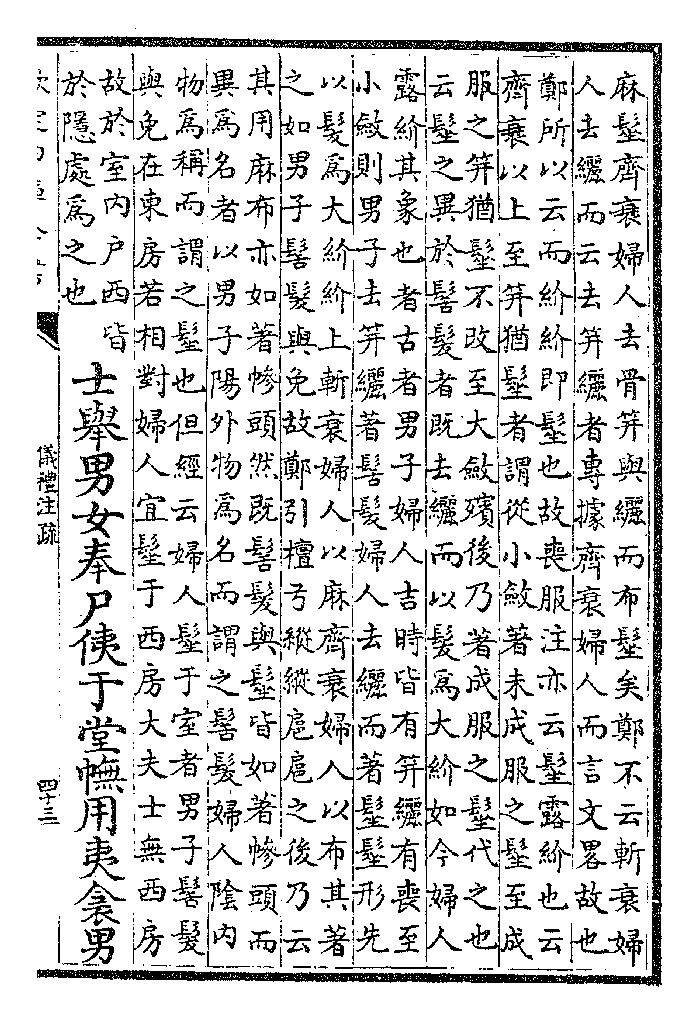 麻髽齊衰婦人去骨笄與纚而布髽矣鄭不云斬衰婦
人去纚而云去笄纚者專據齊衰婦人而言文畧故也
鄭所以云而紒紒即髽也故喪服注亦云髽露紒也云
齊衰以上至笄猶髽者謂從小斂著未成服之髽至成
服之笄猶髽不改至大斂殯後乃著成服之髽代之也
云髽之異於髻髮者既去纚而以髮爲大紒如今婦人
露紒其象也者古者男子婦人吉時皆有笄纚有喪至
小斂則男子去笄纚著髻髮婦人去纚而著髽髽形先
以髮爲大紒紒上斬衰婦人以麻齊衰婦人以布其著
之如男子髻髮與免故鄭引檀弓縱縱扈扈之後乃云
其用麻布亦如著幓頭然既髻髮與髽皆如著幓頭而
異爲名者以男子陽外物爲名而謂之髻髮婦人陰内
物爲稱而謂之髽也但經云婦人髽于室者男子髻髮
與免在東房若相對婦人宜髽于西房大夫士無西房
故於室内户西皆
於隱處爲之也
士舉男女奉尸侇于堂幠用夷衾男
儀禮注疏
四十三